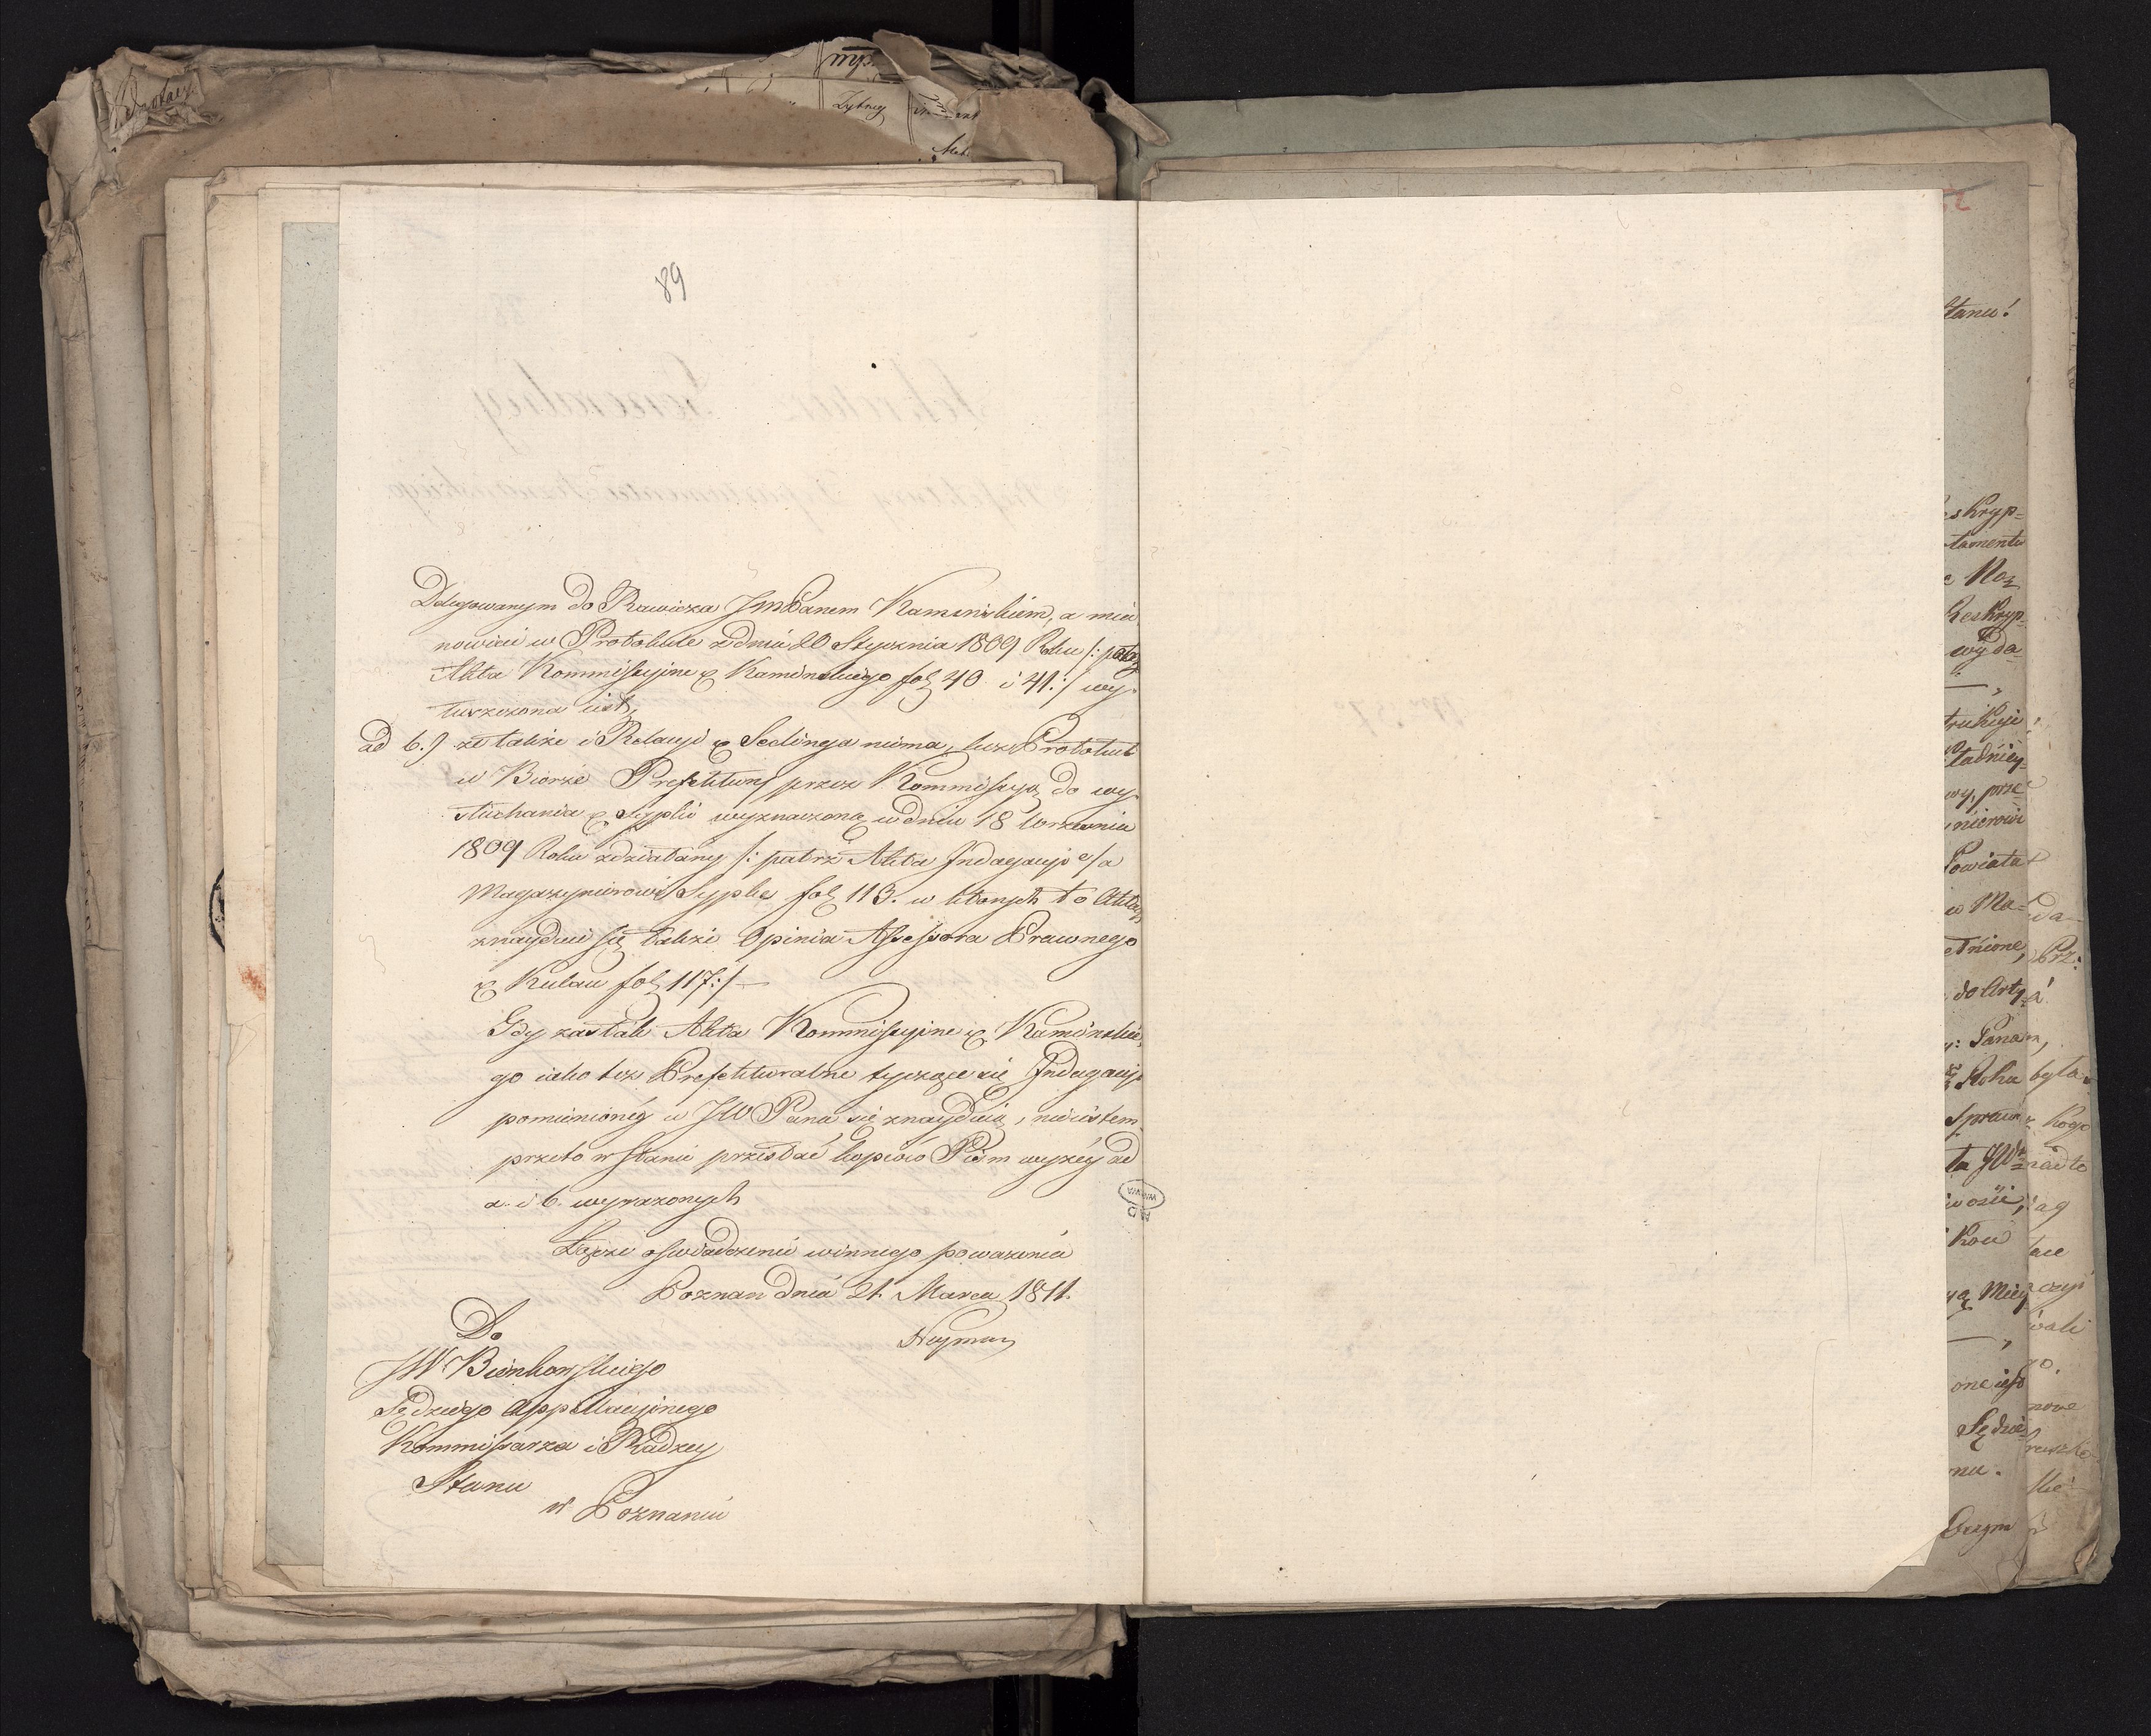 89
Delegowanym do Rawicza JmPanem Kaminskiem, a mia
nowicie w Protokule z dnia 20 Stycznia 1809 Roku /: patrz
Akta Kommissyjne x Kaminskiego fol 40 i 41 :/ wy-
tuszczona iest,
ad b.) że także i Relacyi x Seelinga niema, lecz Protokuł
w Biorze Prefektury przez Kommissyą do wy-
słuchania x Sypko wyznaczoną w dniu 18 Września
1809 Roku zdziałany /: patrz Akta Indagacyi c/a
Magazynierowi Sypke fol 113. w których to Aktach
znayduie się także Opinia Assessora Prawnego
x Kulau fol 117 :/
Gdy zaś tak Akta Kommissyjne x Kaminskie-
go iako też Prefekturalne tyczące się Indagacyi
pomienioney u JW Pana się znayduią, nie iestem
przeto w stanie przesłać kopiów Pism wyżey ad
a. i b. wyrażonych
Łączę oświadczenie winnego poważenia
Poznan dnia 21. Marca 1811.
Neyman
Do
JW Bienkowskiego
Sędziego Appellacyinego
Kommissarza i Radzcy
Stanu
w Poznaniu
stanu!
eskryp=
tamentu
Reskryp-
wyda
wy, prze
nierowi
Powiatu
w Ma=
etnione,
do Arty
Pana
Roku
była
Kogo
Sędzie
nu.